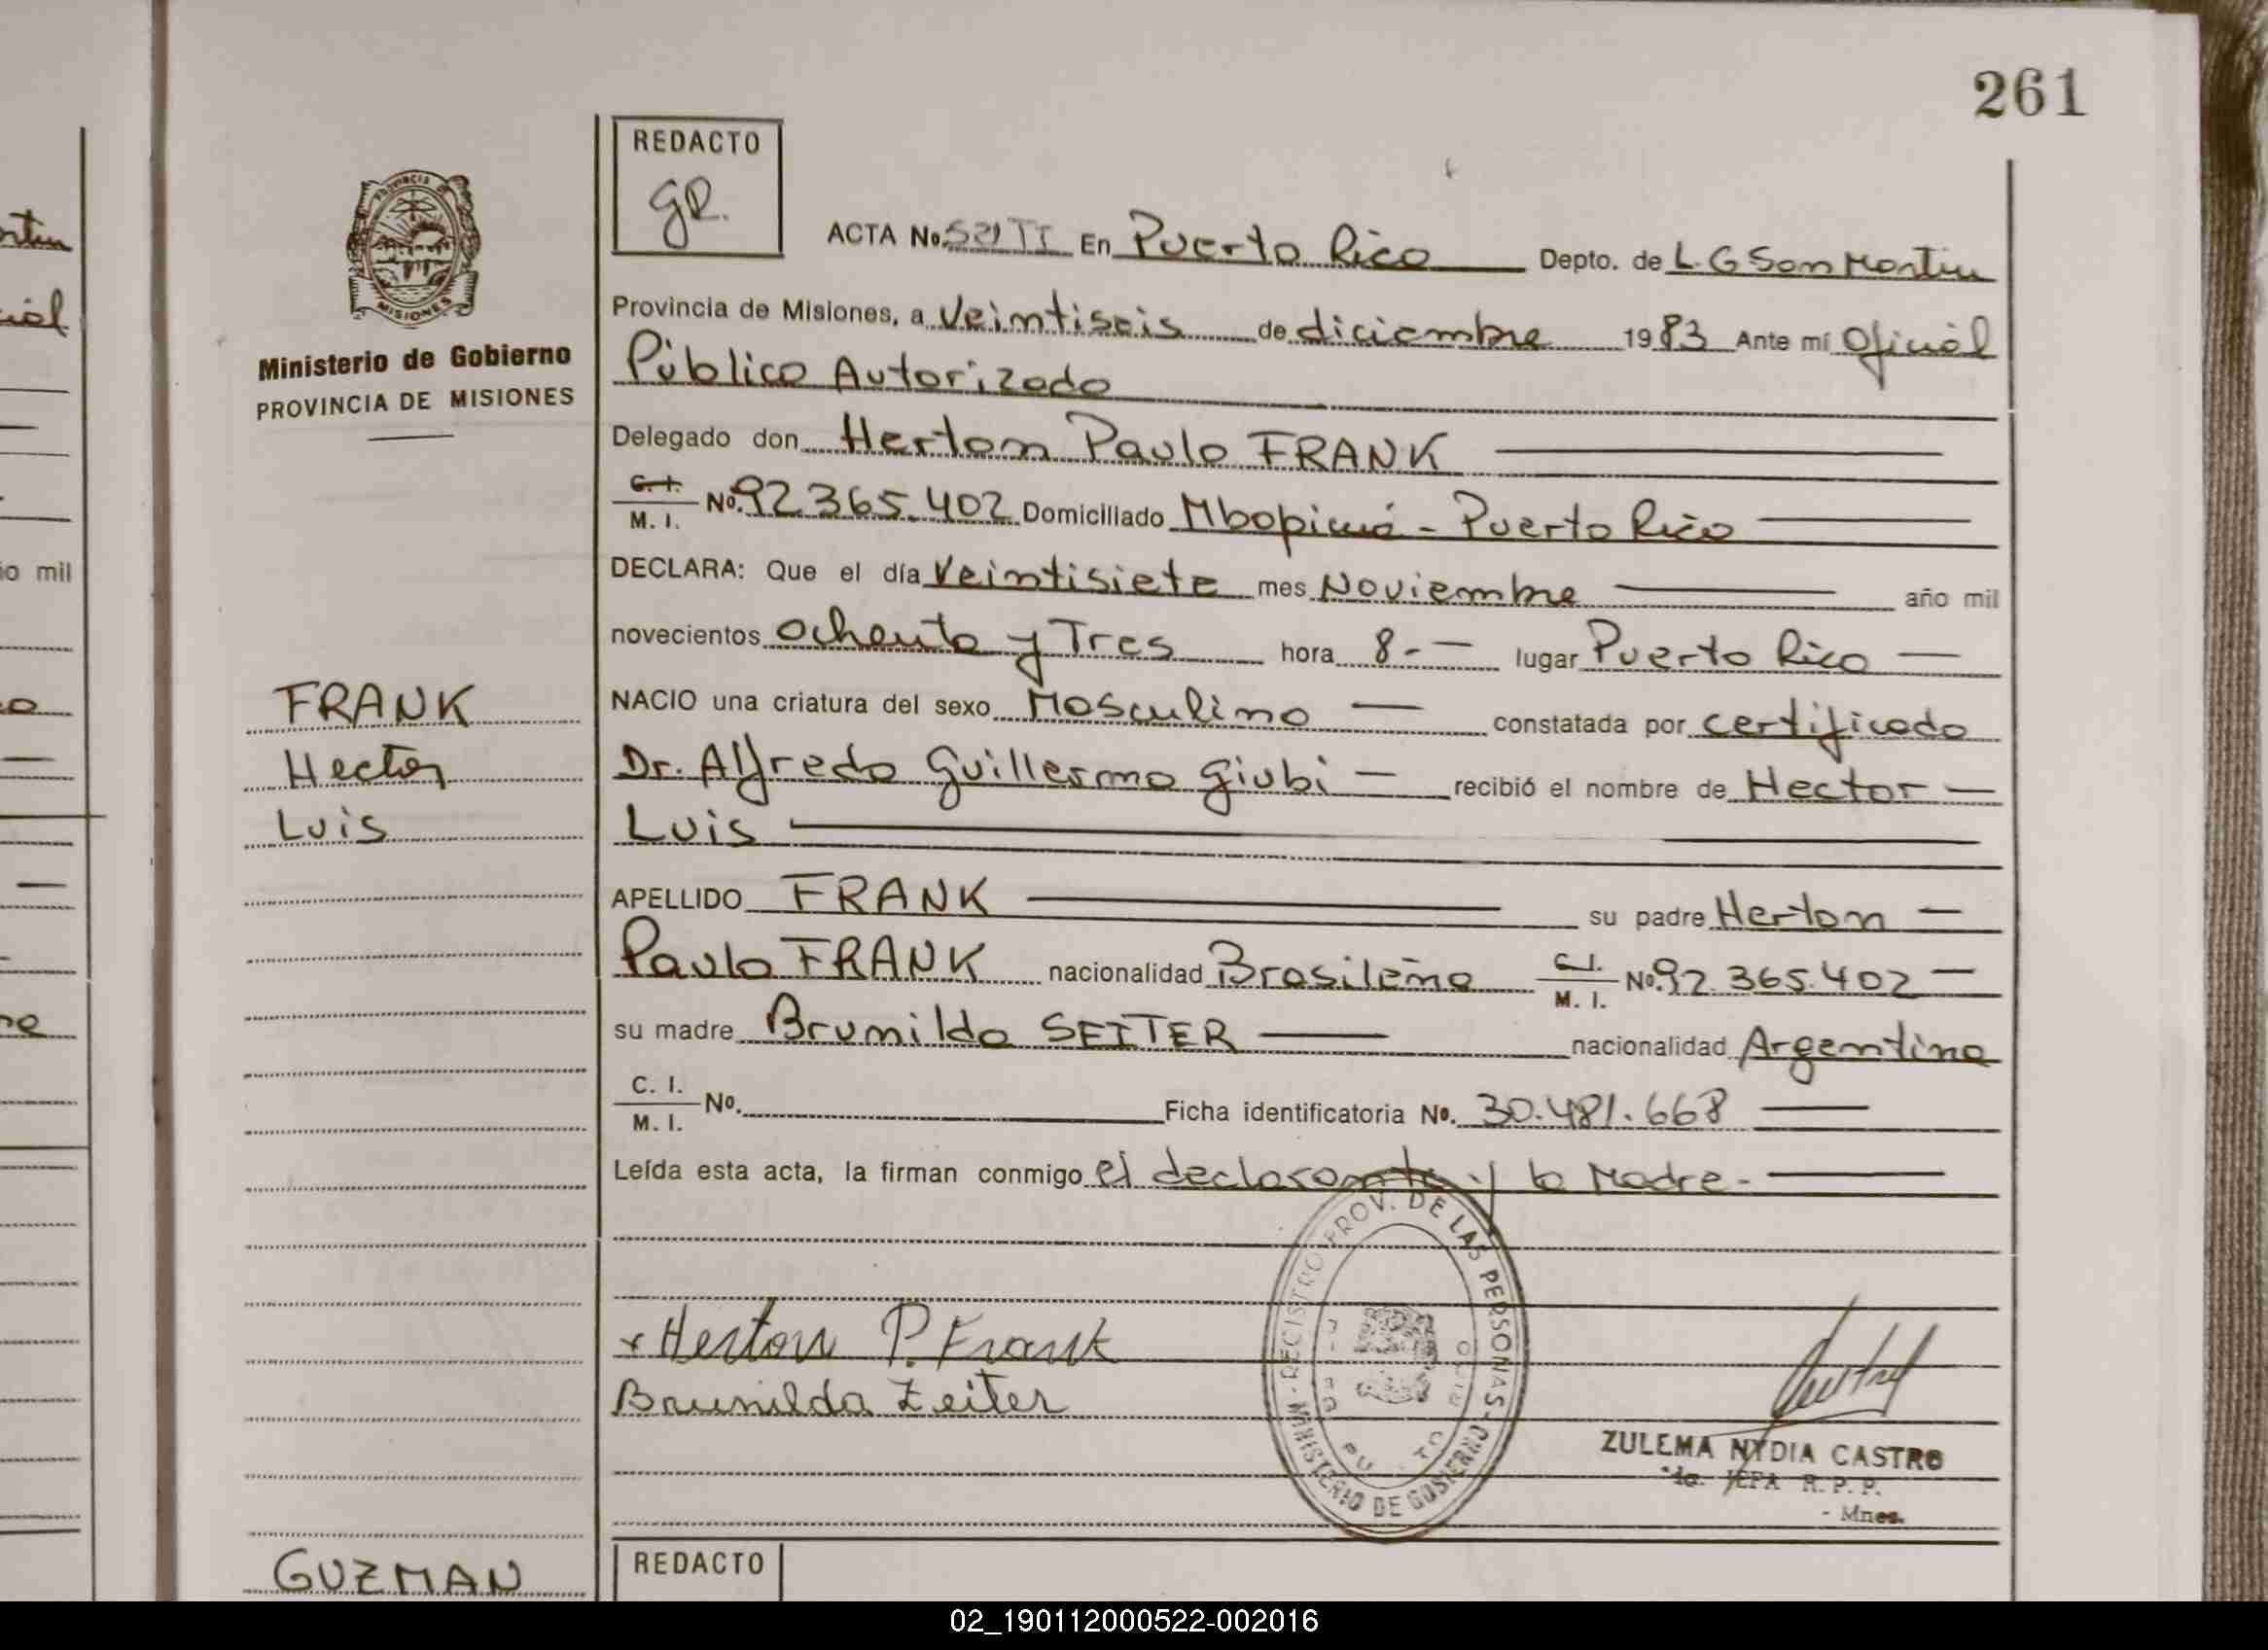 261
REDACTO
gR.
PROVINCIA
MISIONES
Ministerio de Gobierno
PROVINCIA DE MISIONES
ACTA No. 521 TI En Puerto Rico Depto. de L. G San Martin
Provincia de Misiones, a veintiseis de diciembre 1983 Ante mí Oficial
Público Autorizado
Delegado don Herton Paulo FRANK
C. I. M. I. No. 92.365.402 Domiciliado Mbopicuá - Puerto Rico
DECLARA: Que el día veintisiete mes Noviembre año mil
novecientos ochenta y Tres hora 8.- lugar Puerto Rico
NACIO una criatura del sexo Masculino constatada por certificado
Dr. Alfredo Guillermo Giubi recibió el nombre de Hector
Luis
APELLIDO FRANK su padre Herton
Paulo FRANK nacionalidad Brasileña C. I. M. I. No. 92.365.402
su madre Brunilda SEITER nacionalidad Argentina
C. I. M. I. No. Ficha identificatoria No. 30.481.668
Leída esta acta, la firman conmigo el declarante y la Madre.-
FRANK
Hector
Luis
x Herton P. Frank
Brunilda Zeiter
REGISTRO PROV. DE LAS PERSONAS - MINISTERIO DE GOBIERNO
ZULEMA NYDIA CASTRO
JEFA R. P. P.
- Mnes.
GUZMAN
REDACTO
ortin
cial
io mil
02_190112000522-002016